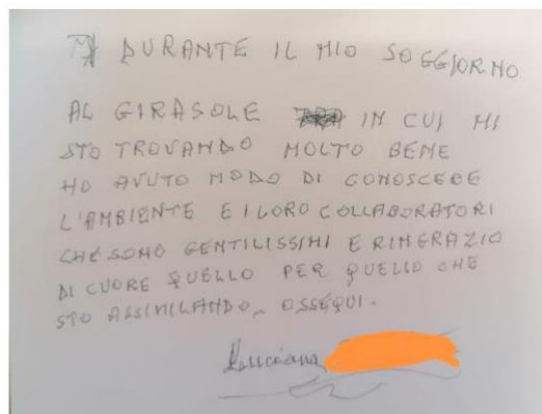 DURANTE IL MIO SOGGIORNO
AL GIRASOLE IN CUI MI
STO TROVANDO MOLTO BENE
HO AVUTO MODO DI CONOSCERE
L'AMBIENTE E I LORO COLLABORATORI
CHE SONO GENTILISSIMI E RINGRAZIO
DI CUORE QUELLO PER QUELLO CHE
STO ASSIMILANDO. OSSEQUI.
Luciana